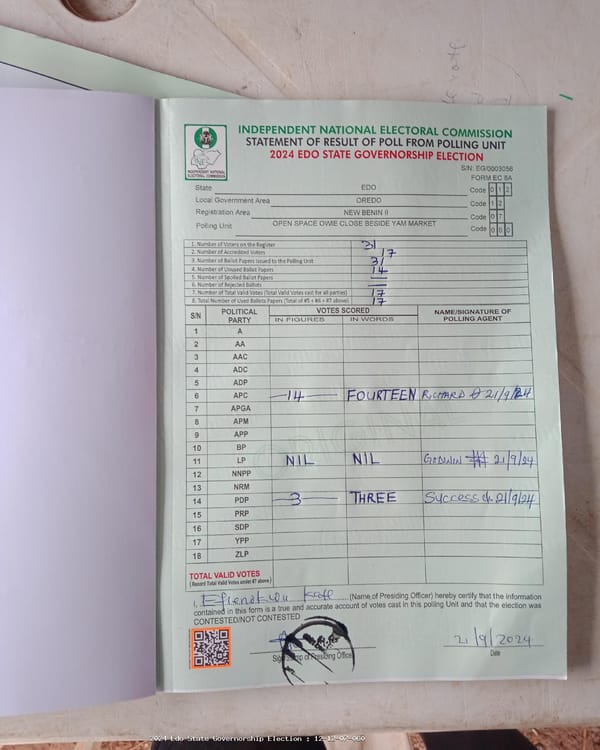 INDEPENDENT NATIONAL ELECTORAL COMMISSION
STATEMENT OF RESULT OF POLL FROM POLLING UNIT
2024 EDO STATE GOVERNORSHIP ELECTION
INDEPENDENT NATIONAL ELECTORAL COMMISSION
S/N: EG/0003056
FORM EC 8A
State EDO Code 0 1 2
Local Government Area OREDO Code 1 2
Registration Area NEW BENIN II Code 0 7
Polling Unit OPEN SPACE OWIE CLOSE BESIDE YAM MARKET Code 0 6 0
1. Number of Voters on the Register 31
2. Number of Accredited Voters 17
3. Number of Ballot Papers Issued to the Polling Unit 31
4. Number of Unused Ballot Papers 14
5. Number of Spoiled Ballot Papers —
6. Number of Rejected Ballots —
7. Number of Total Valid Votes (Total Valid Votes cast for all parties) 17
8. Total Number of Used Ballots Papers (Total of #5 + #6 + #7 above) 17
S/N POLITICAL PARTY VOTES SCORED NAME/SIGNATURE OF POLLING AGENT
IN FIGURES IN WORDS
1 A
2 AA
3 AAC
4 ADC
5 ADP
6 APC 14 FOURTEEN RICHARD 21/9/24
7 APGA
8 APM
9 APP
10 BP
11 LP NIL NIL GODWIN 21/9/24
12 NNPP
13 NRM
14 PDP 3 THREE Success 21/9/24
15 PRP
16 SDP
17 YPP
18 ZLP
TOTAL VALID VOTES
(Record Total Valid Votes under #7 above)
I, (Name of Presiding Officer) hereby certify that the information
contained in this form is a true and accurate account of votes cast in this polling Unit and that the election was
CONTESTED/NOT CONTESTED
21/9/2024
of Presiding Officer Date
2024 Edo State Governorship Election : 12-12-07-060